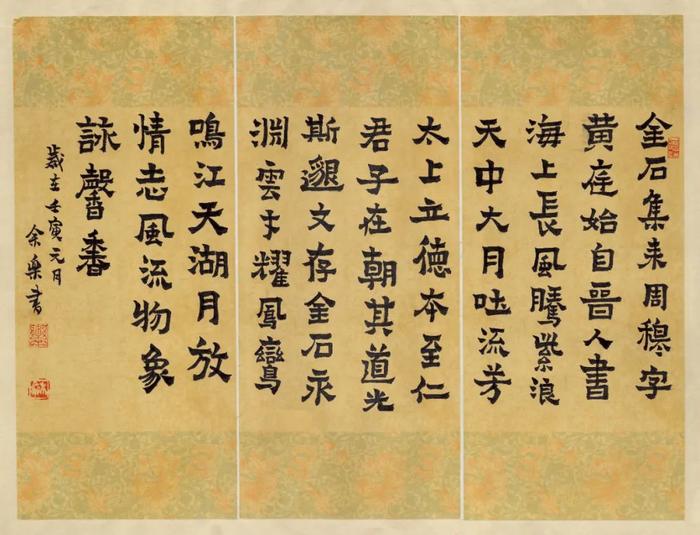 金石集来周穆字
黄庭始自晉人書
海上長風騰紫浪
天中大月吐流芳
太上立德本至仁
君子在朝其道光
斯邈文存金石永
淵雲才耀鳳鸞
鳴江天湖月放
情志風流物象
詠馨香
歲在壬寅元月
余樂書